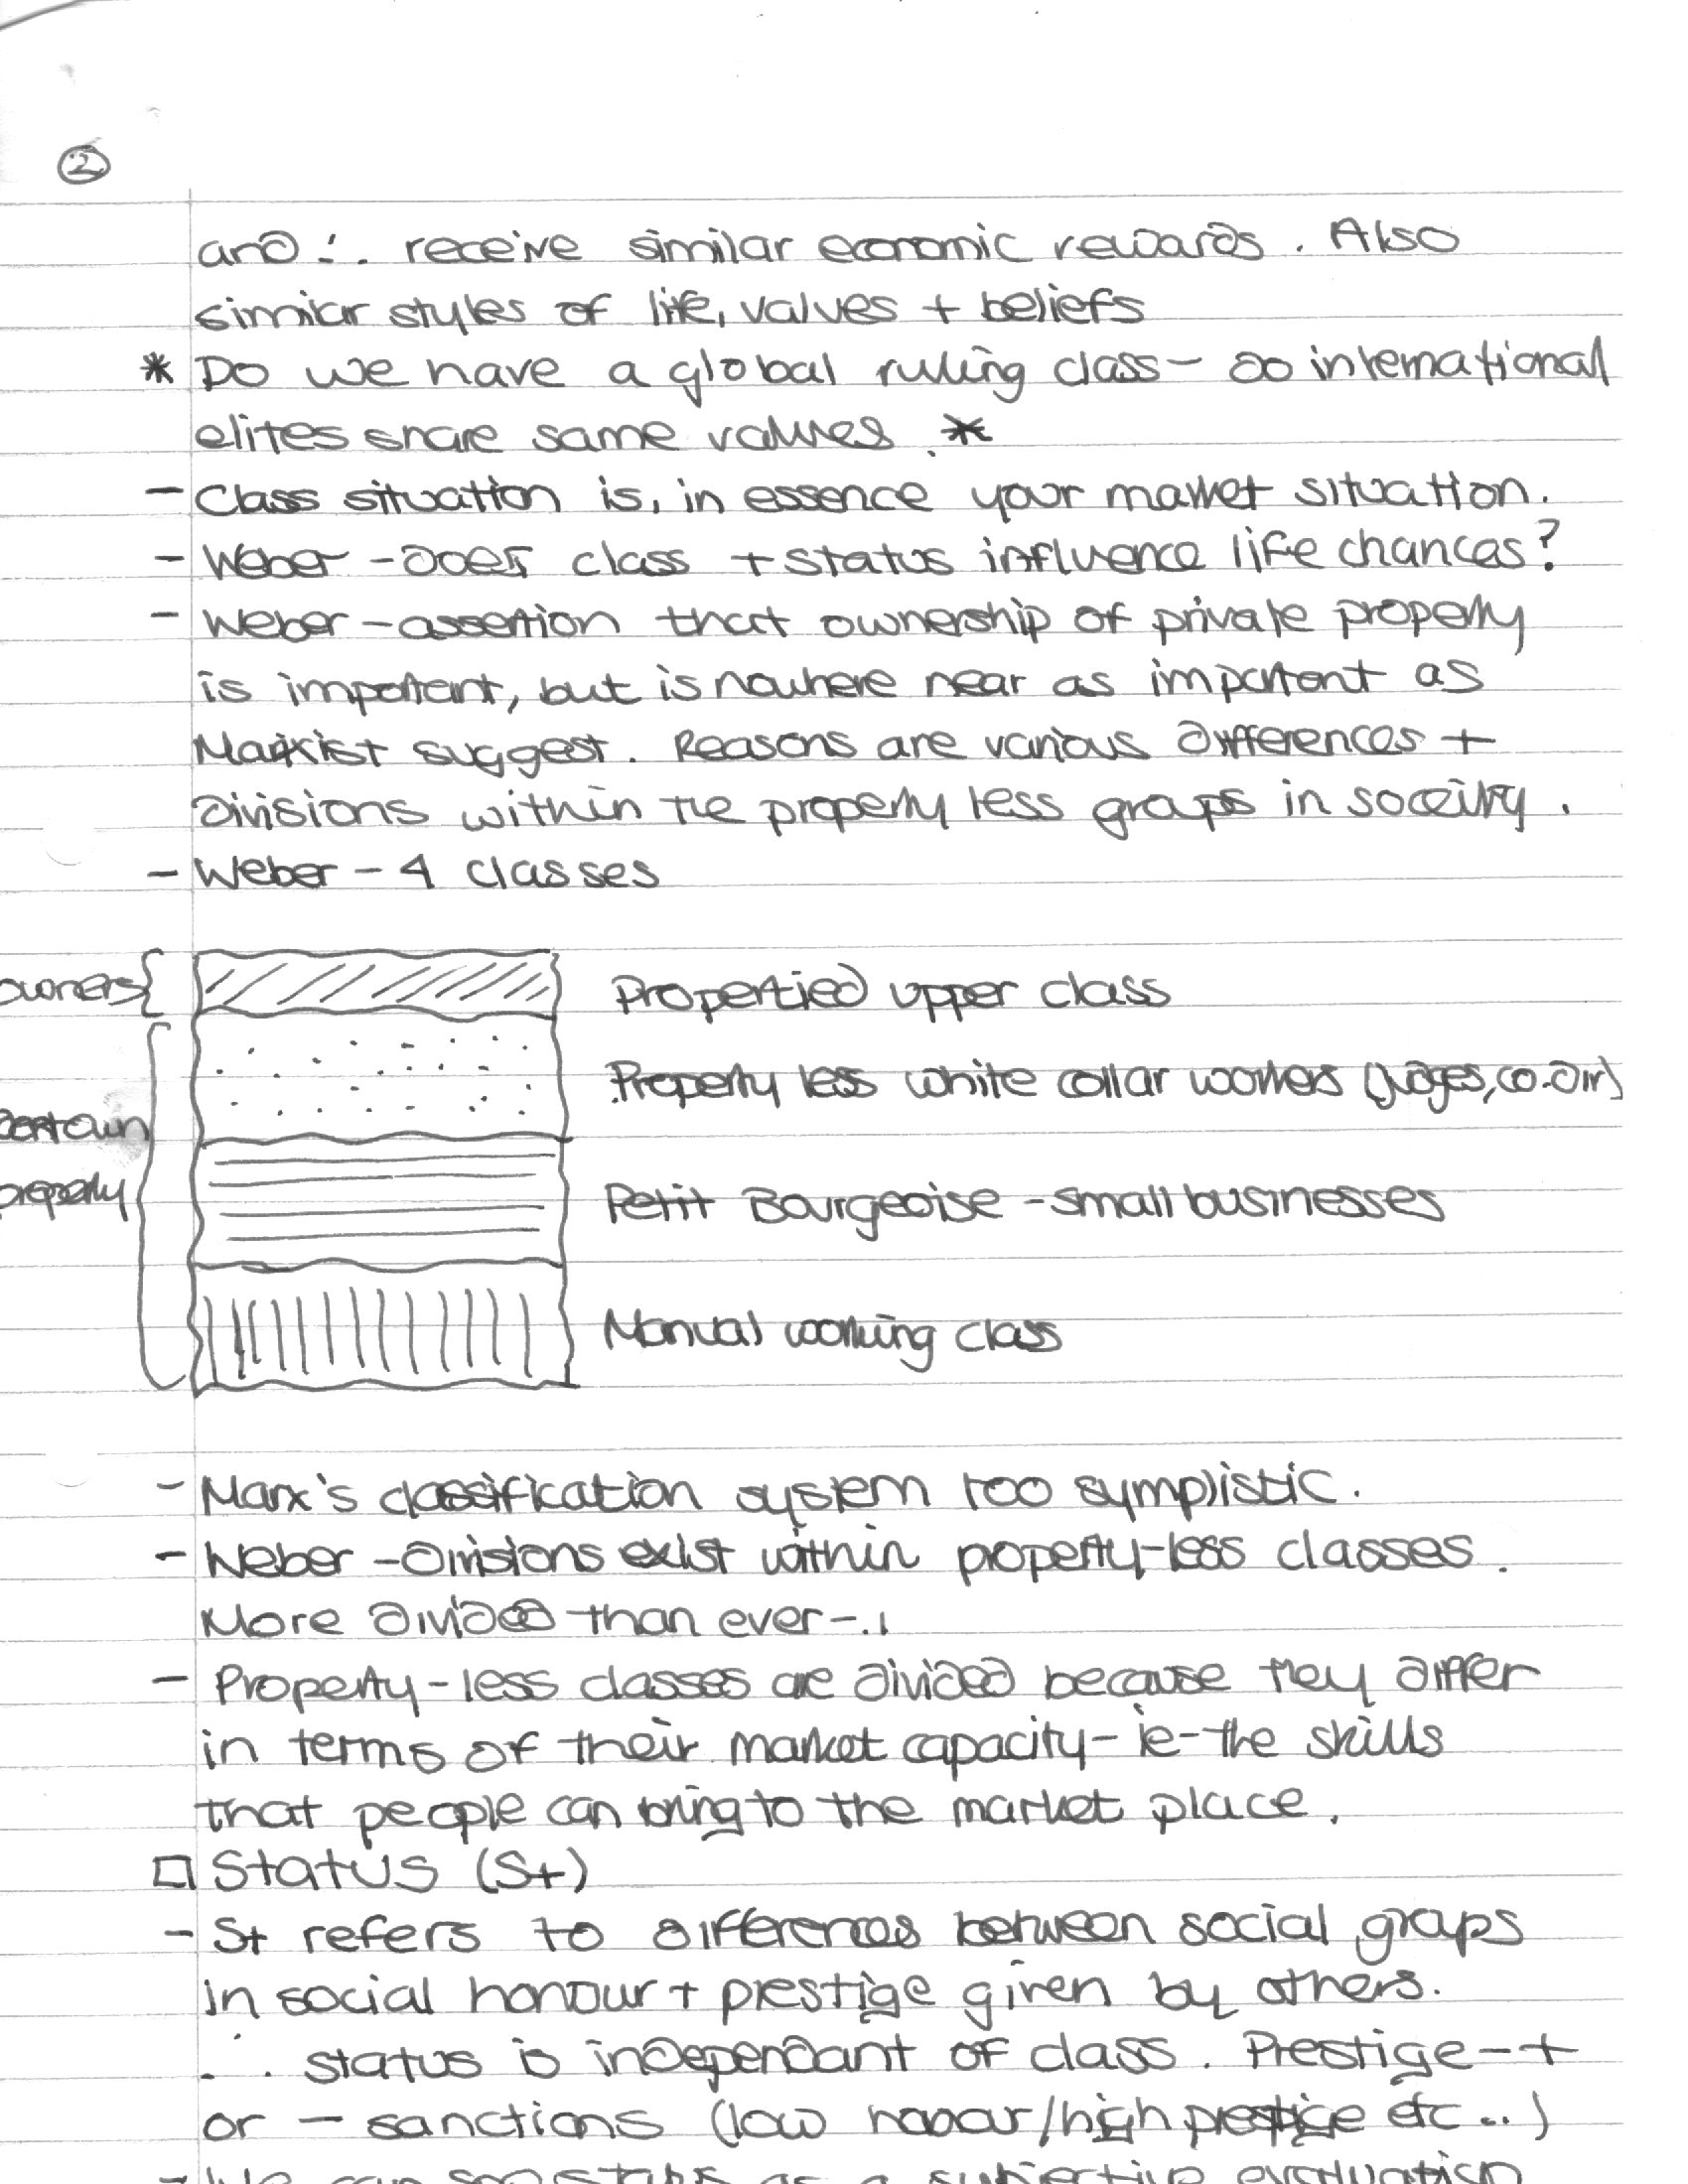 ②
and ∴ receive similar economic rewards. Also
similar styles of life, values + beliefs
* Do we have a global ruling class - do international
elites share same values. *
- Class situation is, in essence your market situation.
- Weber - does class + status influence life chances?
- Weber - assertion that ownership of private property
is important, but is nowhere near as important as
Marxist suggest. Reasons are various differences +
divisions within the property less groups in soceity.
- Weber - 4 classes
owners { Propertied upper class
Property less white collar workers (judges, co. dir)
property
Petit Bourgeoise - small businesses
Manual working class
- Marx's classification system too symplistic.
- Weber - divisions exist within property-less classes.
More divided than ever - .
- Property-less classes are divided because they differ
in terms of their market capacity - ie - the skills
that people can bring to the market place.
□ Status (St)
- St refers to differences between social groups
in social honour + prestige given by others.
∴ status is independant of class. Prestige - +
or - sanctions (low honour/high prestige etc...)
- We can see status as a subjective evaluation